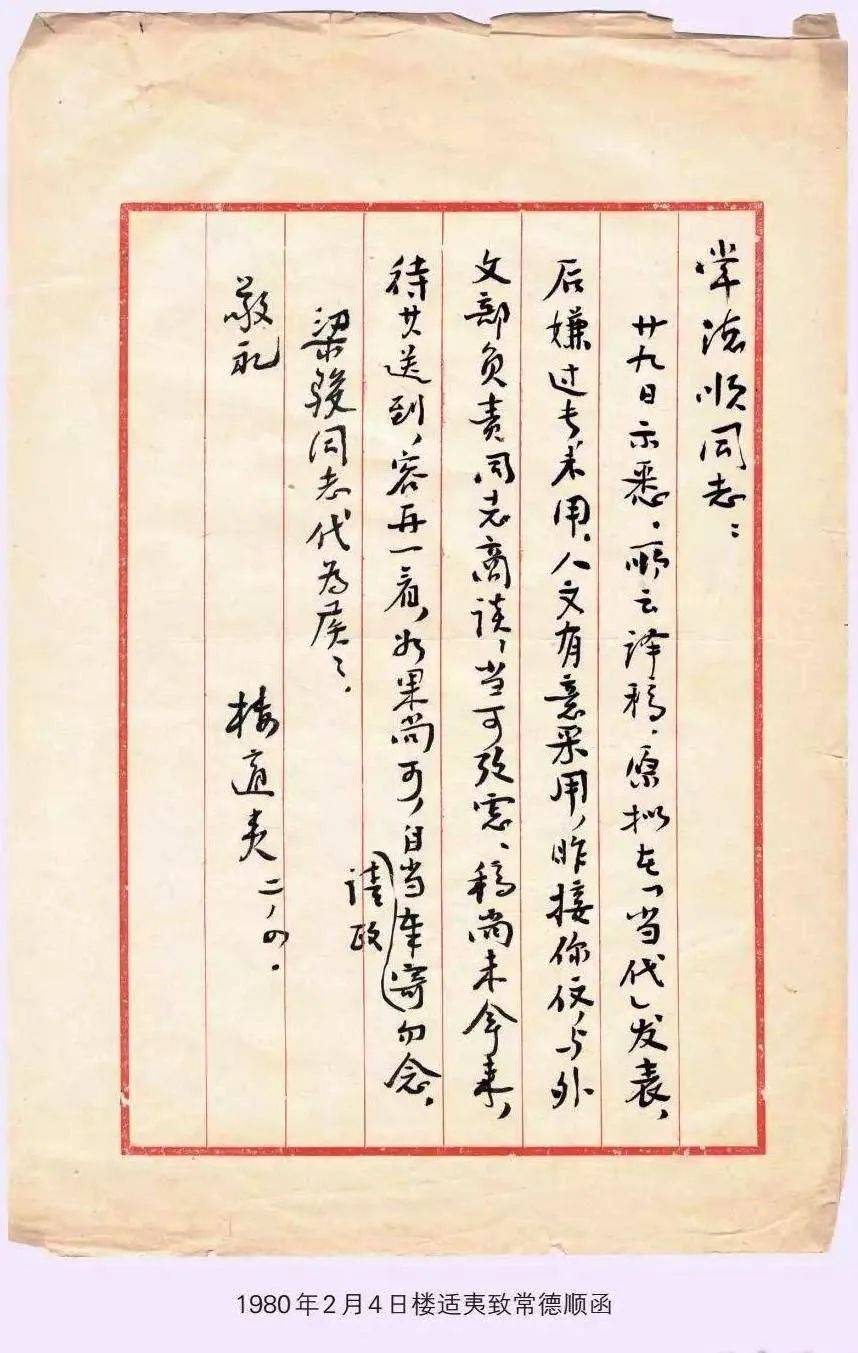 常德顺同志：
廿九日示悉。所云译稿，原拟在「当代」发表，
后嫌过长未用，人文有意采用，昨接你仅，与外
文部负责同志商谈，当可改寄、稿尚未拿来，
待其送到，容再一看，如果尚可，自当奉寄勿念，
请政
梁骏同志代为候々，
敬礼
楼适夷 二，四．
1980年2月4日楼适夷致常德顺函